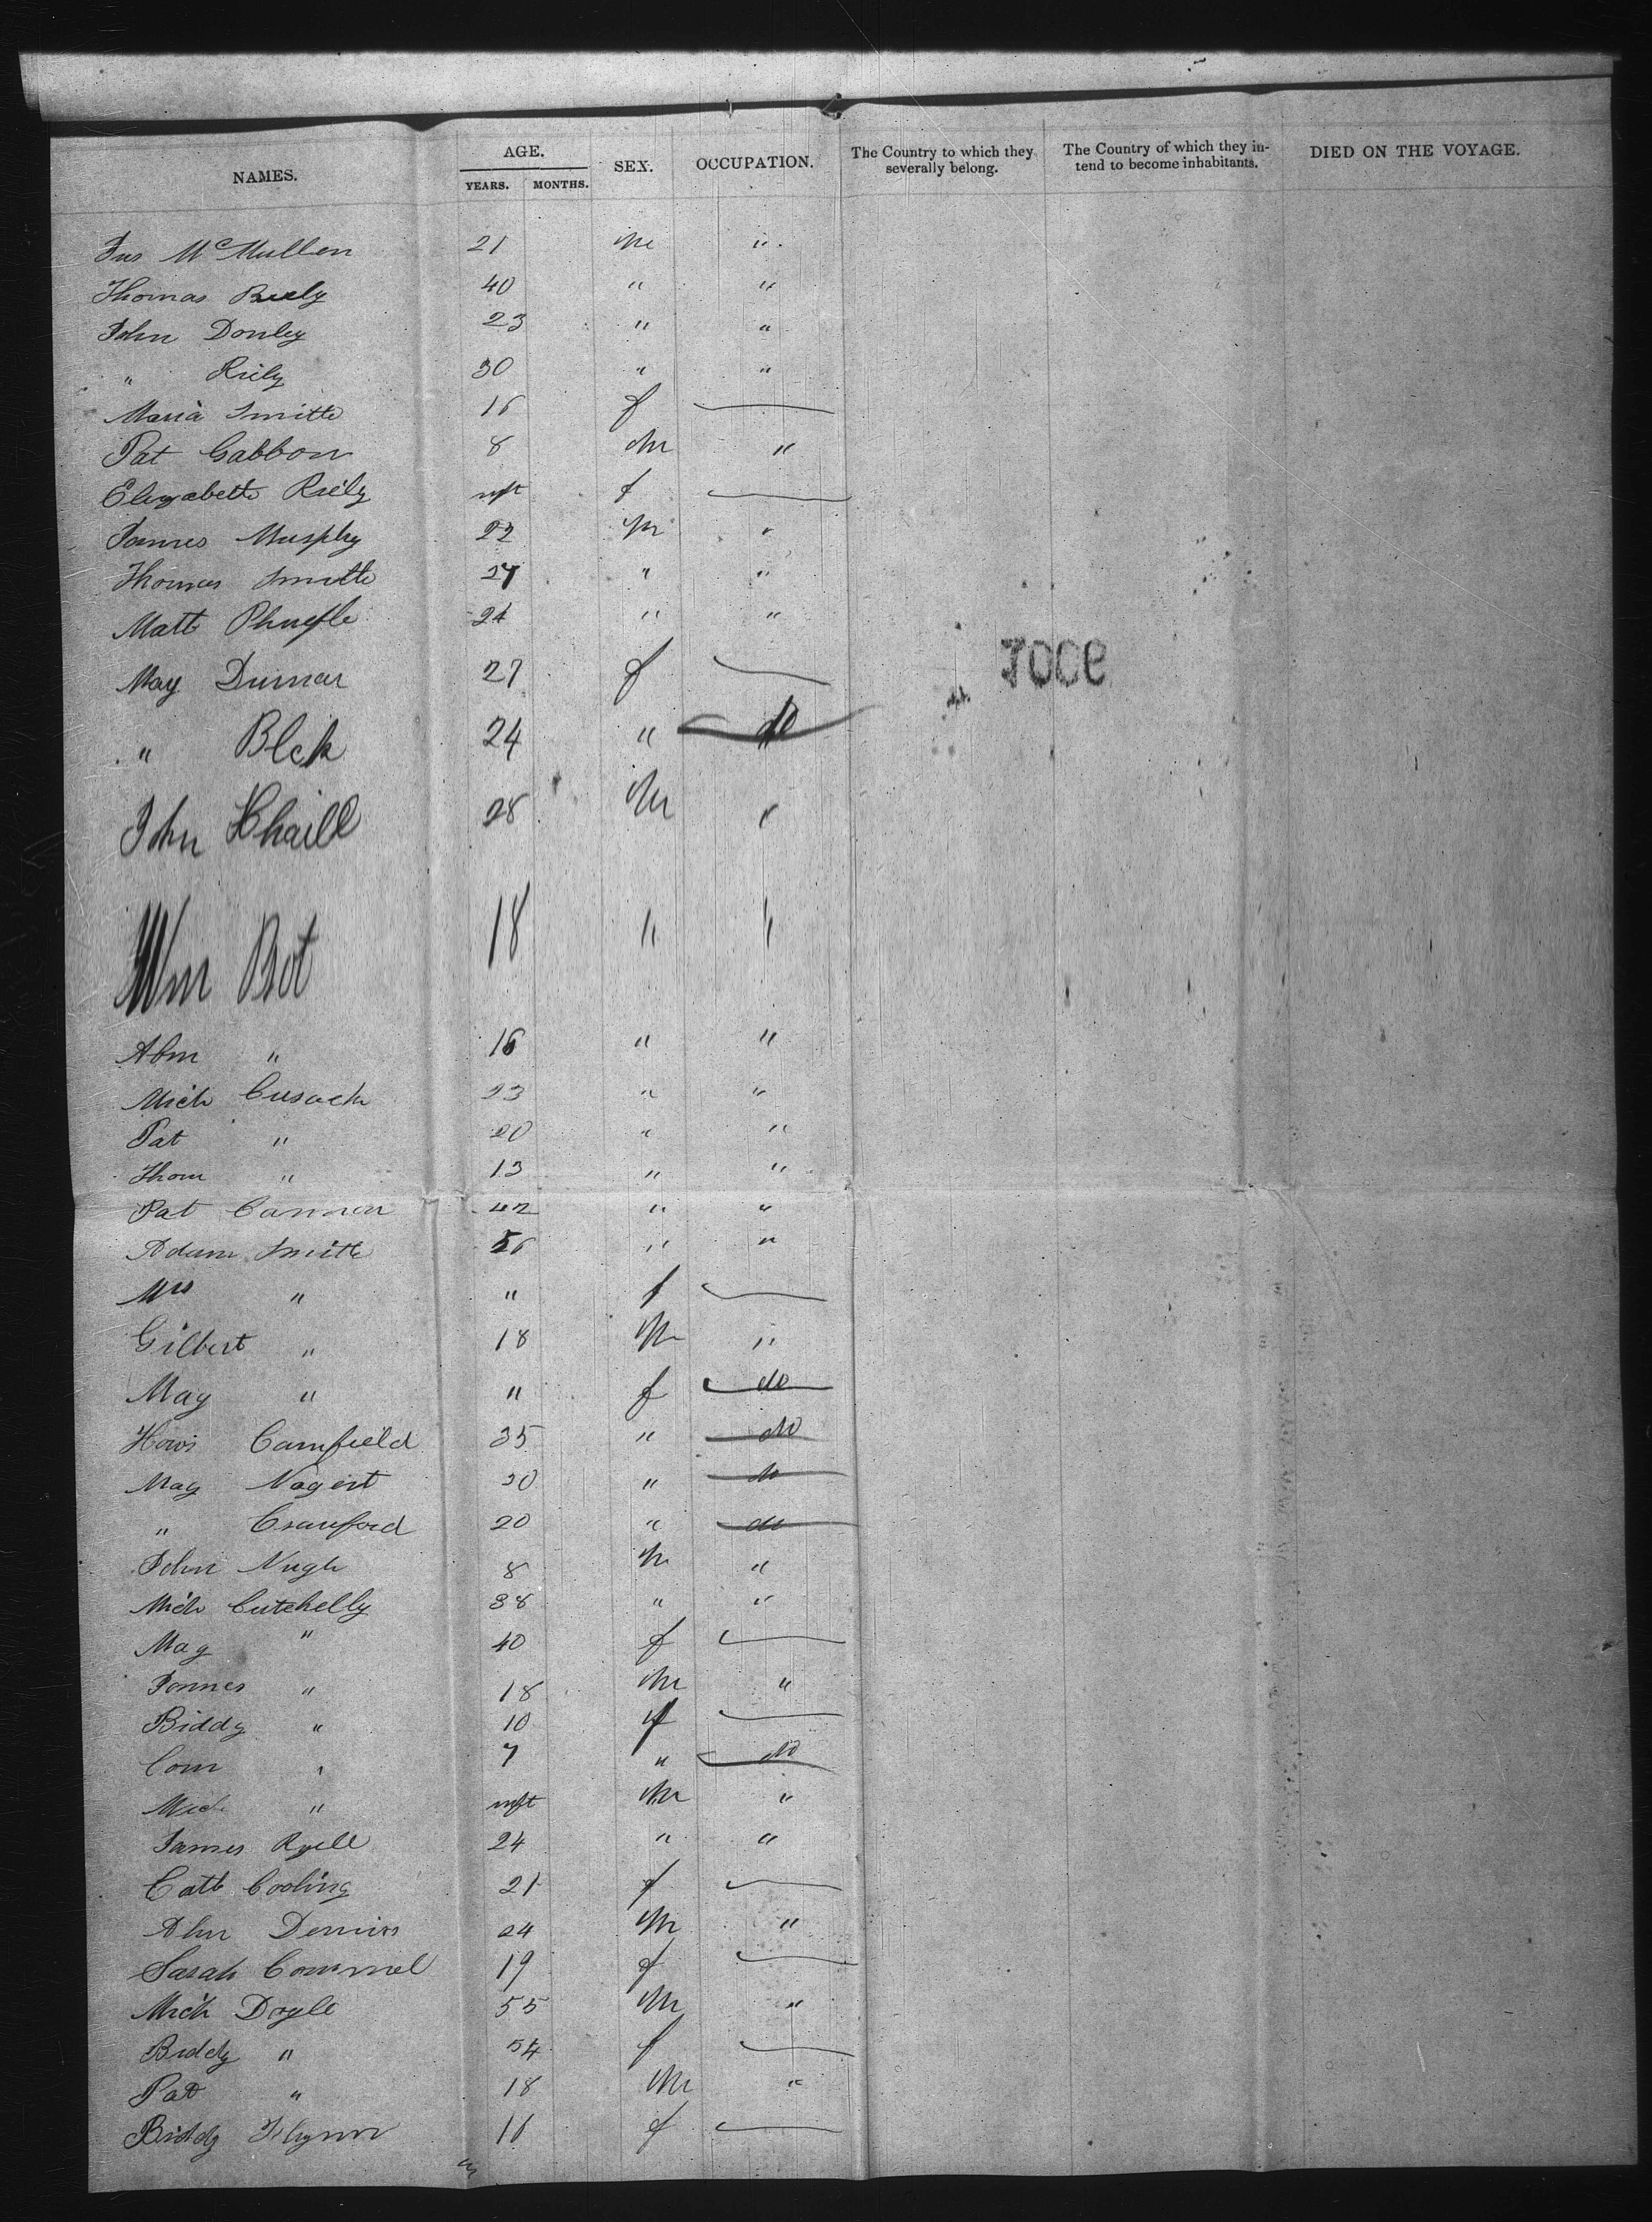 NAMES. AGE. YEARS. MONTHS. SEX. OCCUPATION. The Country to which they severally belong. The Country of which they intend to become inhabitants. DIED ON THE VOYAGE.
Jas McMullen 21 m "
Thomas Riely 40 " "
John Donley 23 " "
" Riely 30 " "
Maria Smith 16 f —
Pat Gabbon 8 m "
Elizabeth Riely inft f —
James Murphy 22 m "
Thomas Smith 27 " "
Matt 24 " "
May 27 f —
" Blck 24 " do
John 28 m "
Wm Bot 18 " "
Abm " 16 " "
Mich Cusack 23 " "
Pat " 20 " "
Thom " 13 " "
Pat Cannon 42 " "
Adam Smith 56 " "
Mrs " " f —
Gilbert " 18 m "
May " " f do
Camfield 35 " do
May Nagert 20 " do
" Crauford 20 " do
John Nugh 8 m "
Mich Cutchelly 38 " "
May " 40 f —
James " 18 m "
Biddy " 10 f —
Com " 7 " do
Mich " inft m "
James Ryell 24 " "
Cath Cooling 21 f —
Dennis 24 m "
Sarah Commel 19 f —
Mich Doyle 55 m "
Biddy " 54 f —
Pat " 18 m "
Biddy Flynn 16 f —